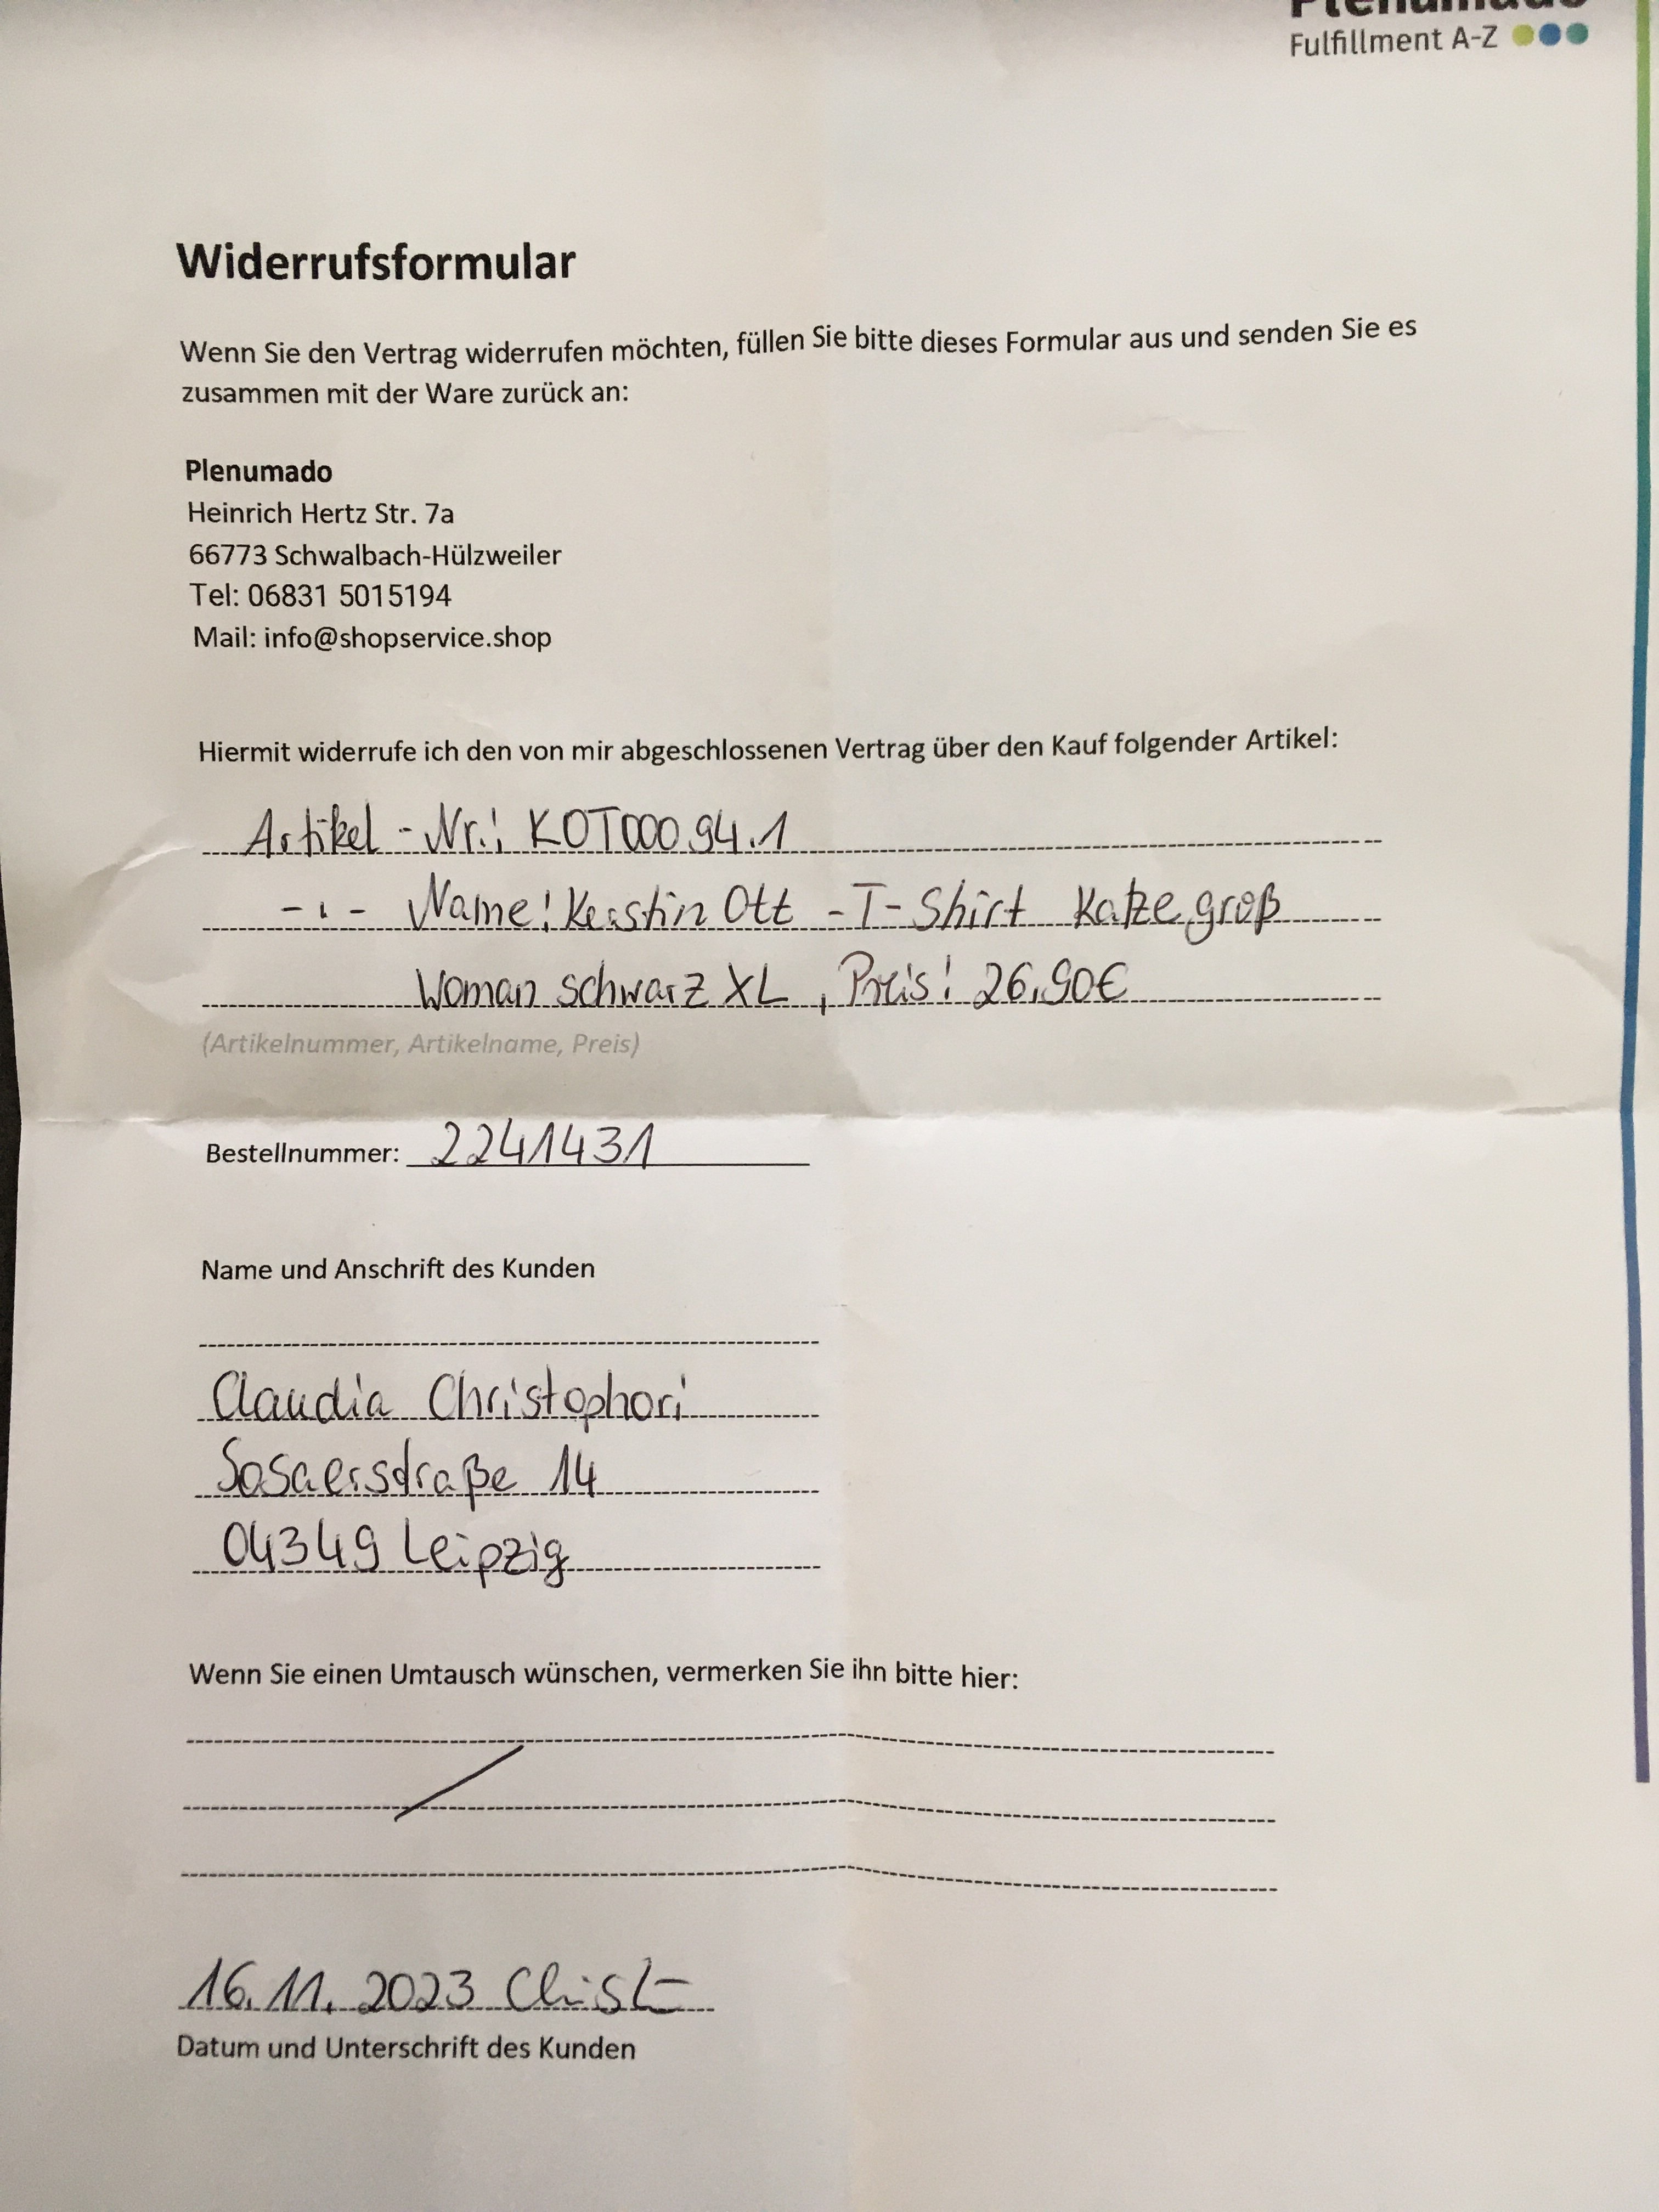 Plenumado
Fulfillment A-Z
Widerrufsformular
Wenn Sie den Vertrag widerrufen möchten, füllen Sie bitte dieses Formular aus und senden Sie es
zusammen mit der Ware zurück an:
Plenumado
Heinrich Hertz Str. 7a
66773 Schwalbach-Hülzweiler
Tel: 06831 5015194
Mail: info@shopservice.shop
Hiermit widerrufe ich den von mir abgeschlossenen Vertrag über den Kauf folgender Artikel:
Artikel-Nr.: KOT00094.1
-"- Name: Kerstin Ott -T-Shirt Katze groß
Woman schwarz XL, Preis: 26,90€
(Artikelnummer, Artikelname, Preis)
Bestellnummer: 2241431
Name und Anschrift des Kunden
Claudia Christophori
Sosaerstraße 14
04349 Leipzig
Wenn Sie einen Umtausch wünschen, vermerken Sie ihn bitte hier:
16.11.2023
Datum und Unterschrift des Kunden